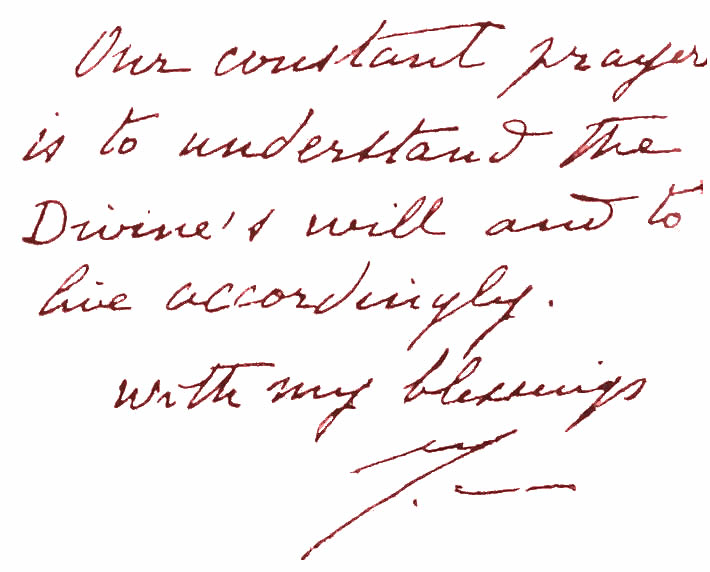 Our constant prayer
is to understand the
Divine's will and to
live accordingly.
with my blessings